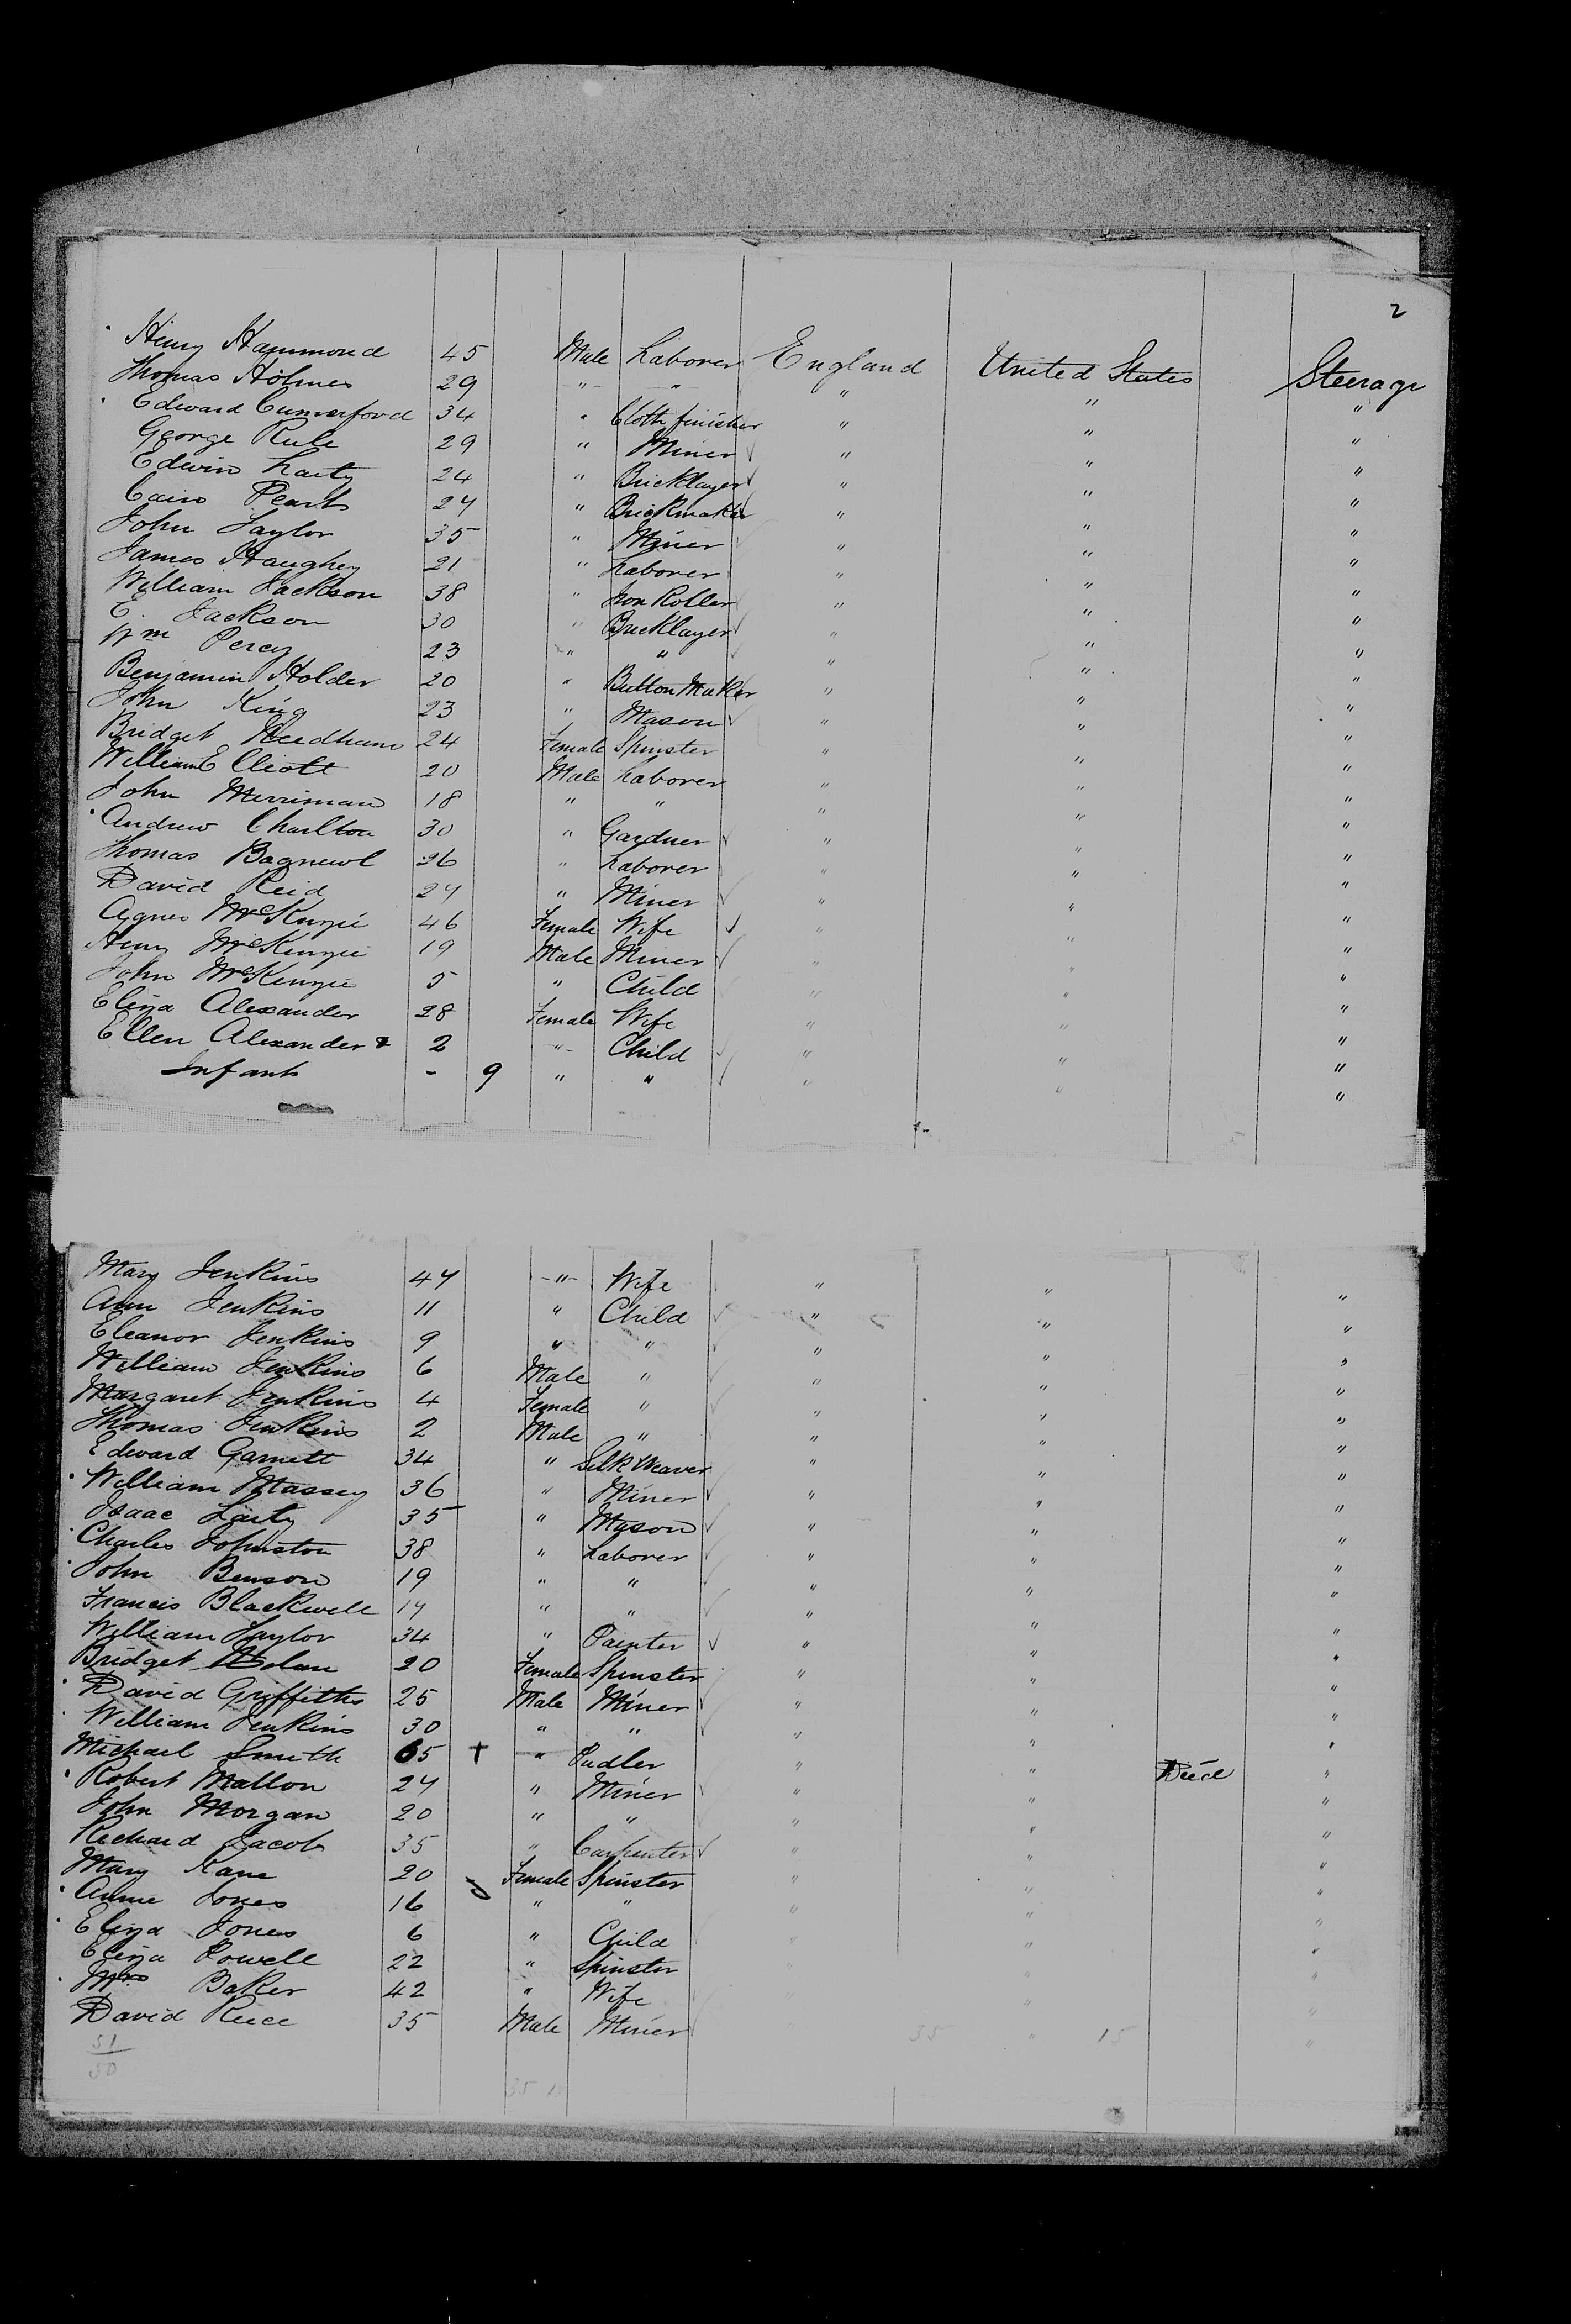 2
Henry Hammond 45 Male Laborer England United States Steerage
Thomas Holmes 29 " " " " "
Edward Cumerford 34 " Cloth finisher " " "
George Rule 29 " Miner " " "
Edwin Laity 24 " Bricklayer " " "
Cairo 24 " Brickmaker " " "
John Taylor 35 " Miner " " "
James Haughey 21 " Laborer " " "
William Jackson 38 " Iron Roller " " "
E. Jackson 30 " Bricklayer " " "
Wm Percy 23 " " " " "
Benjamin Holder 20 " Button Maker " " "
John King 23 " Mason " " "
Bridget Needham 24 Female Spinster " " "
William Elliott 20 Male Laborer " " "
John Merriman 18 " " " " "
Andrew Charlton 30 " Gardner " " "
Thomas 26 " Laborer " " "
David Reid 24 " Miner " " "
Agnes McKenzie 46 Female Wife " " "
Henry McKenzie 19 Male Miner " " "
John McKenzie 5 " Child " " "
Eliza Alexander 28 Female Wife " " "
Ellen Alexander & 2 " Child " " "
Infant - 9 " " " " "
Mary Jenkins 47 " Wife " " "
Ann Jenkins 11 " Child " " "
Eleanor Jenkins 9 " " " " "
William Jenkins 6 Male " " " "
Margaret Jenkins 4 Female " " " "
Thomas Jenkins 2 Male " " " "
Edward Garnett 34 " Silk Weaver " " "
William Massey 36 " Miner " " "
Isaac Laity 35 " Mason " " "
Charles Johnston 38 " Laborer " " "
John Benson 19 " " " " "
Francis Blackwell 17 " " " " "
William Taylor 34 " Painter " " "
Bridget 20 Female Spinster " " "
David Griffiths 25 Male Miner " " "
William Jenkins 30 " " " " "
Michael Smith 65 + " Pudler " " Died "
Robert Mallon 24 " Miner " " "
John Morgan 20 " " " " "
Richard Jacob 35 " Carpenter " " "
Mary Kane 20 Female Spinster " " "
Annie Jones 16 " " " " "
Eliza Jones 6 " Child " " "
Eliza Powell 22 " Spinster " " "
Mrs Baker 42 " Wife " " "
David Reece 35 Male Miner " " "
51 35 15
50
35